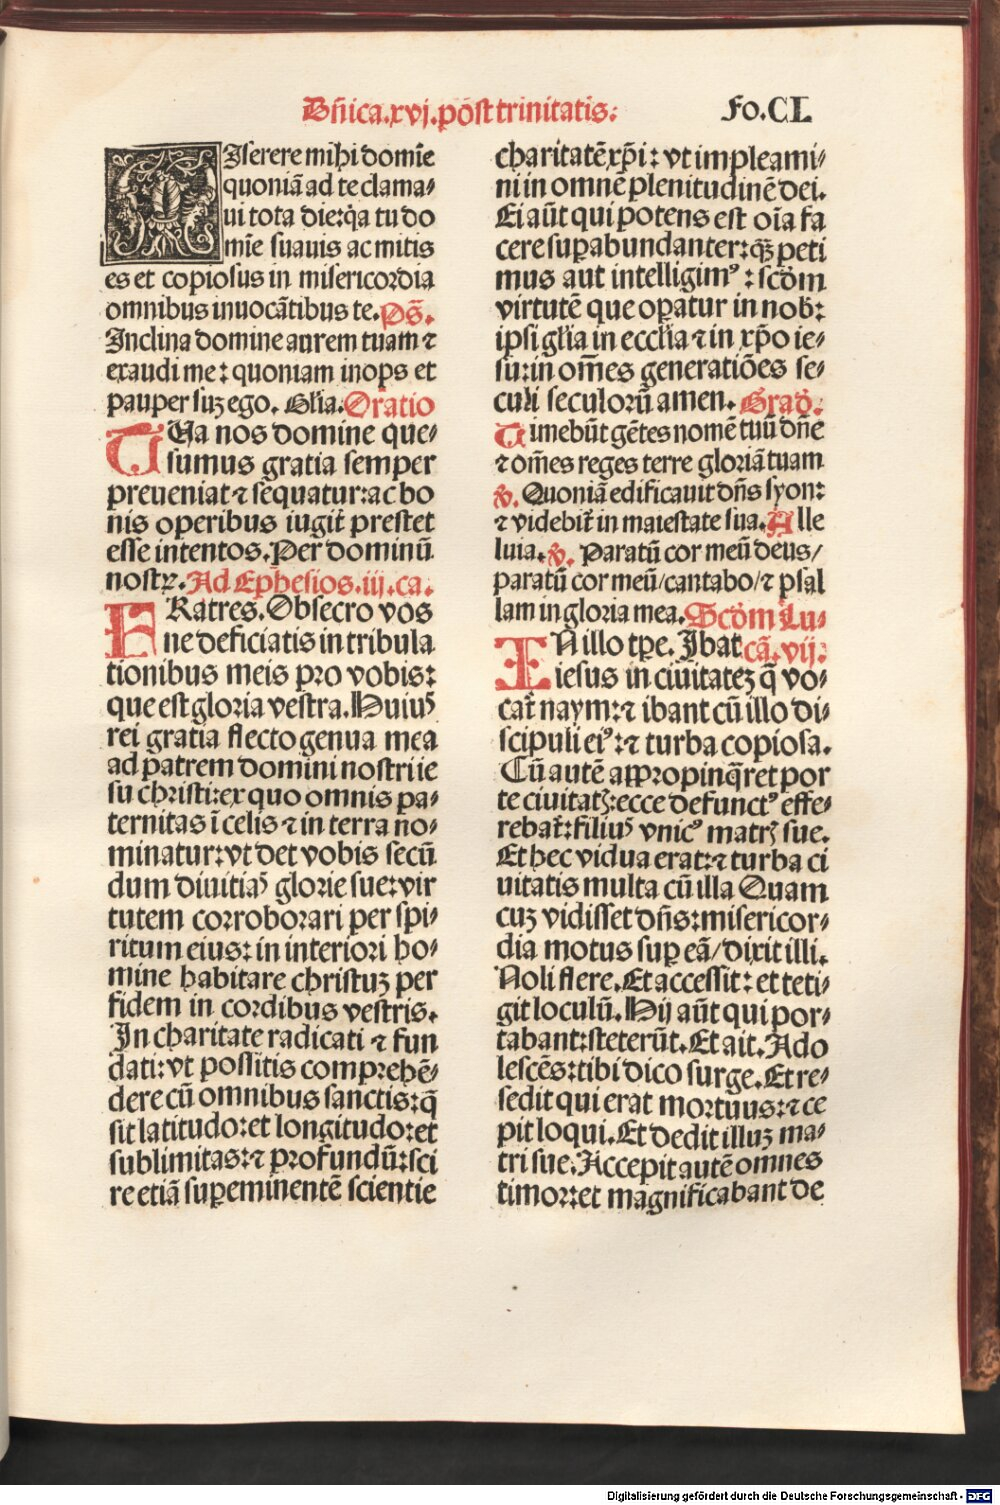 Dñica.xvj.põst trinitatis:
Fo.CL
MIserere mihi domie
quoniã ad te clama⸗
ui tota die:q̃a tu do
mĩe suauis ac mitis
es et copiosus in misericordia
omnibus inuocãtibus te. Ps̃.
Inclina domine aurem tuam ⁊
exaudi me: quoniam inops et
pauper suꝫ ego. Gl̃ia. Oratio
TUa nos domine que⸗
sumus gratia semper
preueniat ⁊ sequatur:ac bo
nis operibus iugit̃ prestet
esse intentos. Per dominũ
nostꝝ. Ad Ephesios.iij.ca.
FRatres. Obsecro vos
ne deficiatis in tribula
tionibus meis pro vobis:
que est gloria vestra. Huiuꝰ
rei gratia flecto genua mea
ad patrem domini nostri ie
su christi:ex quo omnis pa⸗
ternitas ĩ celis ⁊ in terra no⸗
minatur:vt det vobis secũ
dum diuitiaꝰ glorie sue:vir
tutem corroborari per spi⸗
ritum eius: in interiori ho⸗
mine habitare christuꝫ per
fidem in cordibus vestris.
In charitate radicati ⁊ fun
dati:vt possitis comprehẽ⸗
dere cũ omnibus sanctis:q̃
sit latitudo:et longitudo:et
sublimitas:⁊ profundũ:sci
re etiã suꝑeminentẽ scientie
charitatẽ xp̃i: vt impleami⸗
ni in omnẽ plenitudinẽ dei.
Ei aũt qui potens est oĩa fa
cere suꝑabundanter:q̃ꝫ peti
mus aut intelligimꝰ: scd̃m
virtutẽ que oꝑatur in nob̃:
ipsi gl̃ia in eccl̃ia ⁊ in xp̃o ie⸗
su:in om̃es generatiões se⸗
culi seculorũ amen. Grad̃.
Timebũt gẽtes nomẽ tuũ dñe
⁊ om̃es reges terre gloriã tuam
℣. Quoniã edificauit dñs syon:
⁊ videbit̃ in maiestate sua. Alle
luia. ℣. Paratũ cor meũ deus/
paratũ cor meũ/cantabo/⁊ psal
lam in gloria mea. Scd̃m Lu⸗
IN illo tꝑe. Ibat cã.vij.
iesus in ciuitateꝫ q̃ vo⸗
cat̃ naym:⁊ ibant cũ illo di⸗
scipuli eiꝰ:⁊ turba copiosa.
Cũ autẽ appropinq̃ret por
te ciuitatꝭ:ecce defunctꝰ effe⸗
rebat̃:filiuꝰ vnicꝰ matrꝭ sue.
Et hec vidua erat:⁊ turba ci
uitatis multa cũ illa Quam
cuꝫ vidisset dñs:misericor⸗
dia motus suꝑ eã/dixit illi.
Noli flere. Et accessit: et teti⸗
git loculũ. Hij aũt qui por⸗
tabant:steterũt. Et ait. Ado
lescẽs:tibi dico surge. Et re⸗
sedit qui erat mortuus:⁊ ce
pit loqui. Et dedit illuꝫ ma⸗
tri sue. Accepit autẽ omnes
timor:et magnificabant de
Digitalisierung gefördert durch die Deutsche Forschungsgemeinschaft - DFG